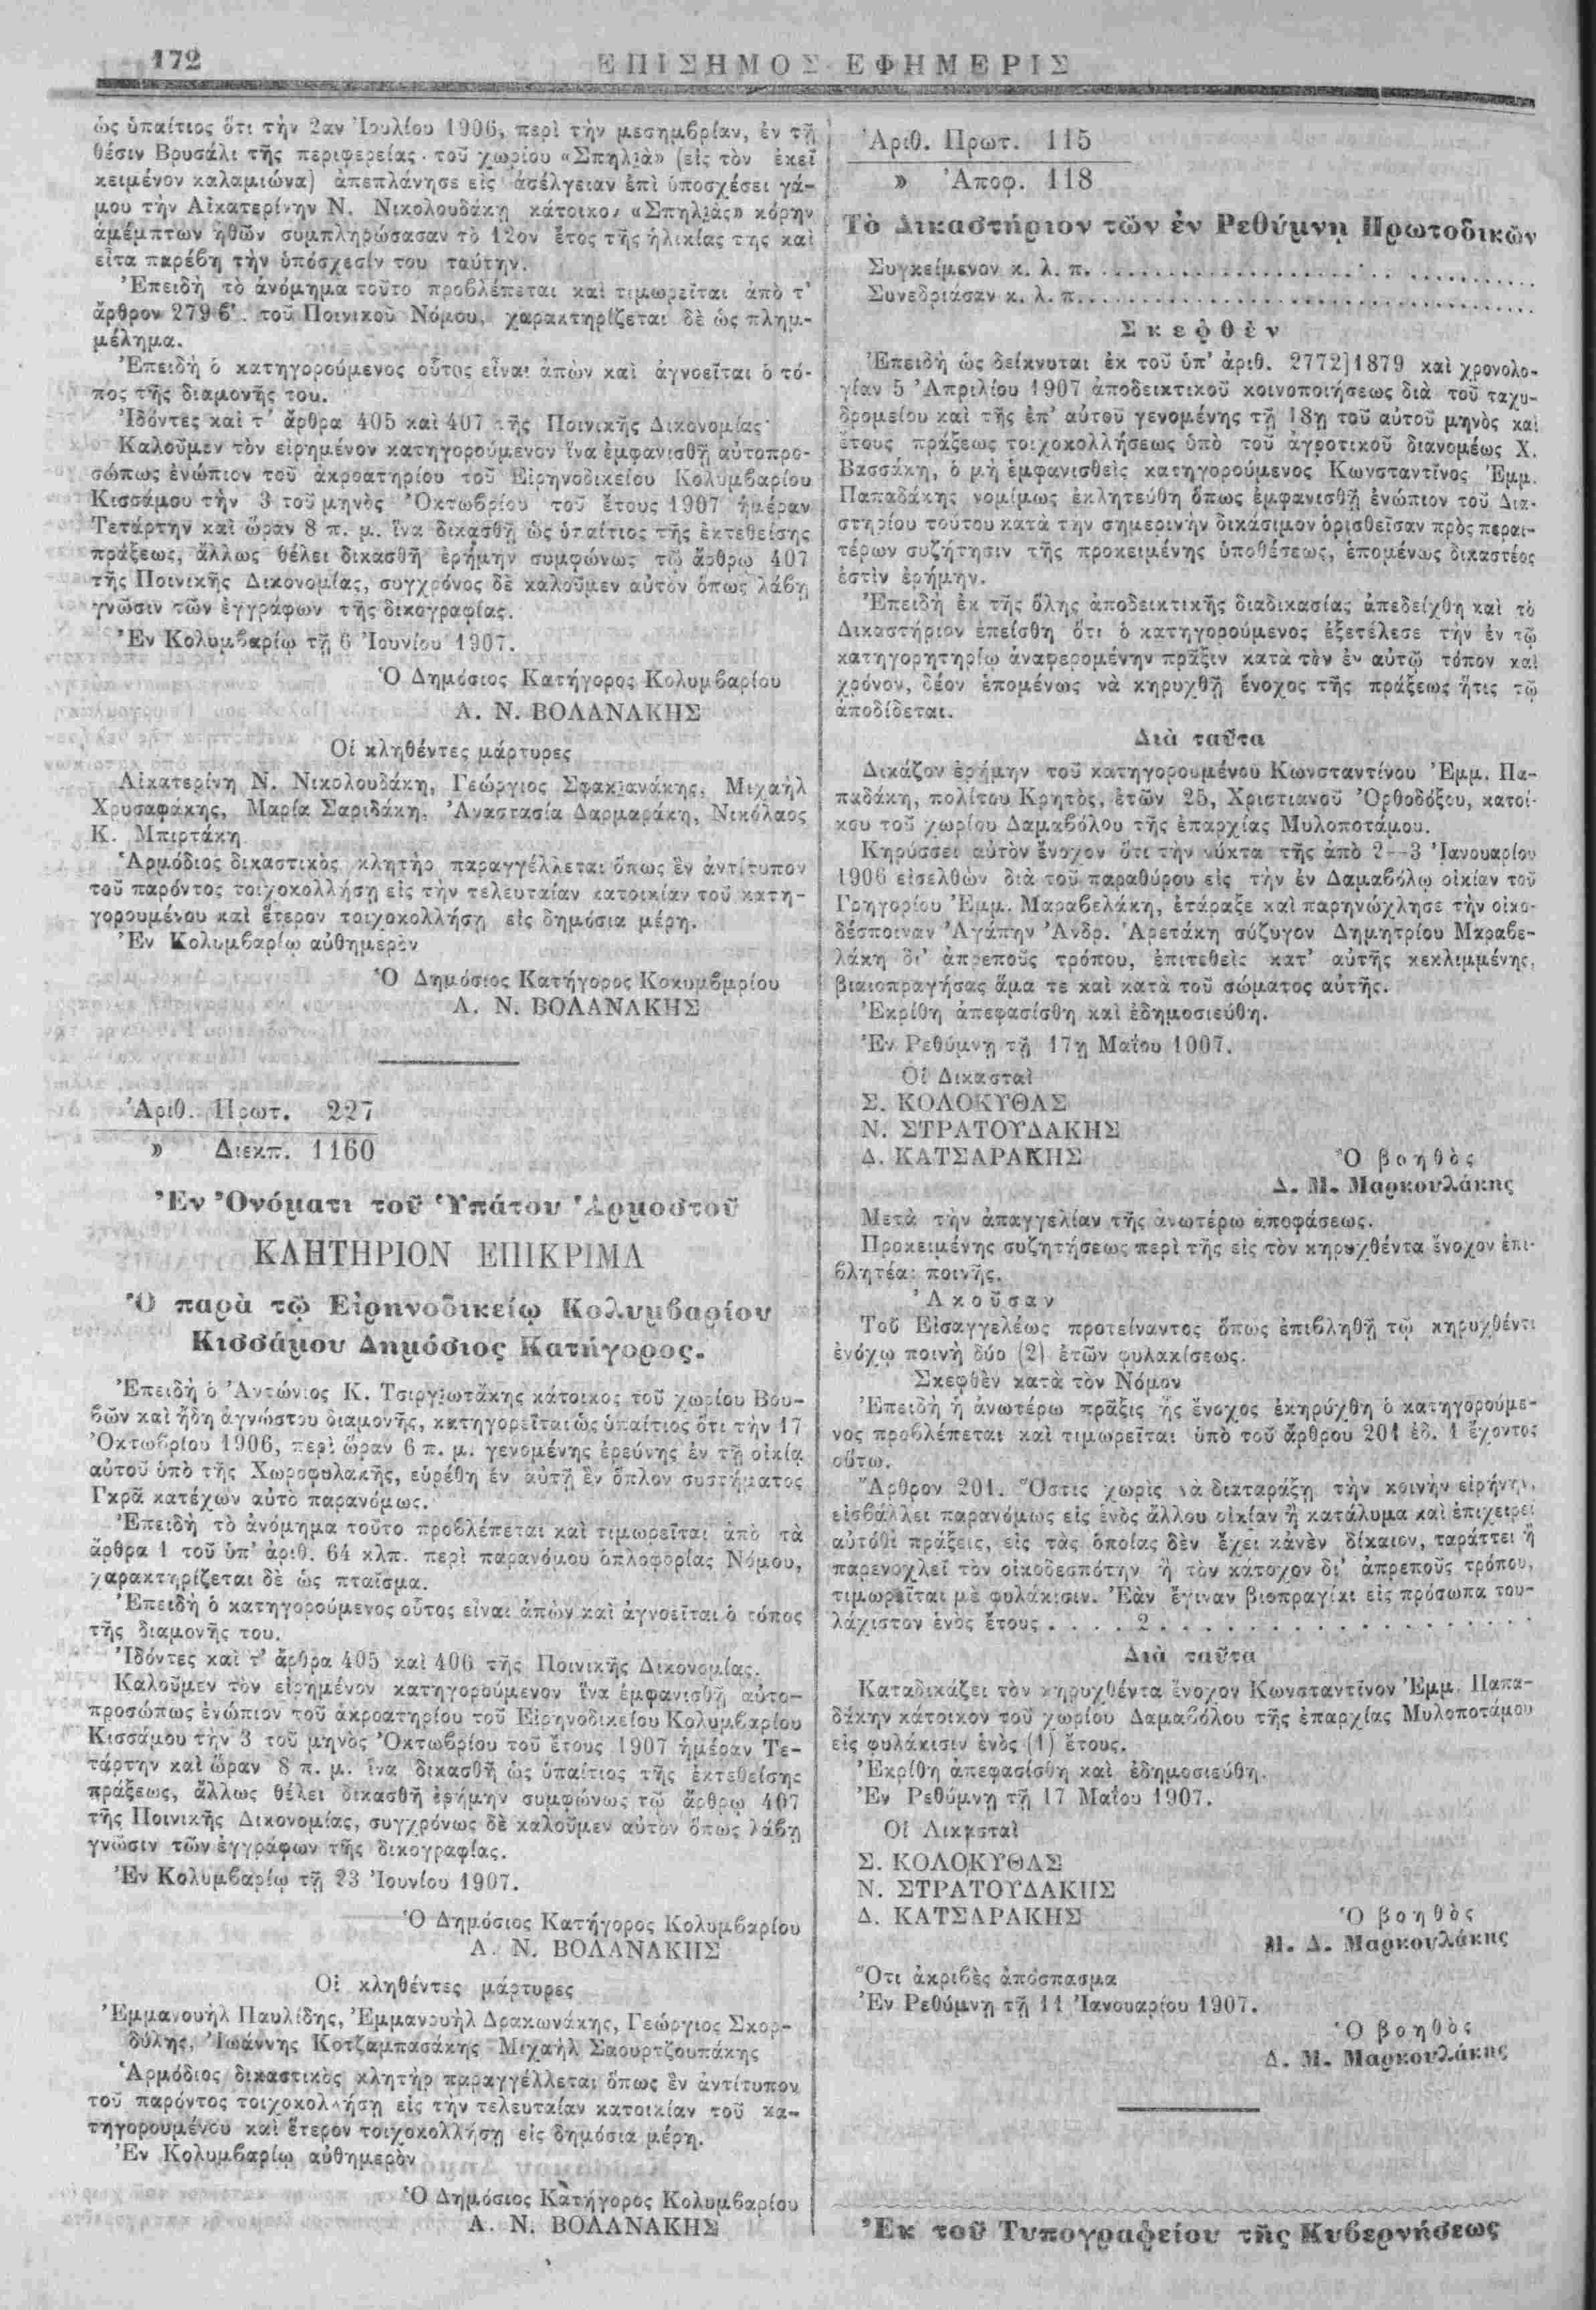 172
ΕΠΙΣΗΜΟΣ ΕΦΗΜΕΡΙΣ
ὡς ὑπαίτιος ὅτι τὴν 2αν Ἰουλίου 1906, περὶ τὴν μεσημβρίαν, ἐν τῇ
θέσιν Βρυσάλι τῆς περιφερείας τοῦ χωρίου «Σπηλιὰ» (εἰς τὸν ἐκεῖ
κειμένον καλαμιώνα) ἀπεπλάνησε εἰς ἀσέλγειαν ἐπὶ ὑποσχέσει γά-
μου τὴν Αἰκατερίνην Ν. Νικολουδάκη κάτοικον «Σπηλιᾶς» κόρην
ἀμέμπτων ἠθῶν συμπληρώσασαν τὸ 12ον ἔτος τῆς ἡλικίας της καὶ
εἶτα παρέβη τὴν ὑπόσχεσίν του ταύτην.
Ἐπειδὴ τὸ ἀνόμημα τοῦτο προβλέπεται καὶ τιμωρεῖται ἀπὸ τ'
ἄρθρον 279 β'. τοῦ Ποινικοῦ Νόμου, χαρακτηρίζεται δὲ ὡς πλημ-
μέλημα.
Ἐπειδὴ ὁ κατηγορούμενος οὗτος εἶναι ἀπὼν καὶ ἀγνοεῖται ὁ τό-
πος τῆς διαμονῆς του.
Ἰδόντες καὶ τ' ἄρθρα 405 καὶ 407 τῆς Ποινικῆς Δικονομίας
Καλοῦμεν τὸν εἰρημένον κατηγορούμενον ἵνα ἐμφανισθῇ αὐτοπρο-
σώπως ἐνώπιον τοῦ ἀκροατηρίου τοῦ Εἰρηνοδικείου Κολυμβαρίου
Κισσάμου τὴν 3 τοῦ μηνὸς Ὀκτωβρίου τοῦ ἔτους 1907 ἡμέραν
Τετάρτην καὶ ὥραν 8 π. μ. ἵνα δικασθῇ ὡς ὑπαίτιος τῆς ἐκτεθείσης
πράξεως, ἄλλως θέλει δικασθῆ ἐρήμην συμφώνως τῷ ἄρθρῳ 407
τῆς Ποινικῆς Δικονομίας, συγχρόνος δὲ καλοῦμεν αὐτὸν ὅπως λάβῃ
γνῶσιν τῶν ἐγγράφων τῆς δικογραφίας.
Ἐν Κολυμβαρίῳ τῇ 6 Ἰουνίου 1907.
Ὁ Δημόσιος Κατήγορος Κολυμβαρίου
Α. Ν. ΒΟΛΑΝΑΚΗΣ
Οἱ κληθέντες μάρτυρες
Αἰκατερίνη Ν. Νικολουδάκη, Γεώργιος Σφακιανάκης, Μιχαὴλ
Χρυσαφάκης, Μαρία Σαριδάκη, Ἀναστασία Δαρμαράκη, Νικόλαος
Κ. Μπιρτάκη
Ἁρμόδιος δικαστικὸς κλητὴρ παραγγέλλεται ὅπως ἓν ἀντίτυπον
τοῦ παρόντος τοιχοκολλήσῃ εἰς τὴν τελευταίαν κατοικίαν τοῦ κατη-
γορουμένου καὶ ἕτερον τοιχοκολλήσῃ εἰς δημόσια μέρη.
Ἐν Κολυμβαρίῳ αὐθημερὸν
Ὁ Δημόσιος Κατήγορος Κοκυμβμρίου
Α. Ν. ΒΟΛΑΝΑΚΗΣ
Ἀριθ. Πρωτ. 227
» Διεκπ. 1160
Ἐν Ὀνόματι τοῦ Ὑπάτου Ἁρμοστοῦ
ΚΛΗΤΗΡΙΟΝ ΕΠΙΚΡΙΜΑ
Ὁ παρὰ τῷ Εἰρηνοδικείῳ Κολυμβαρίου
Κισσάμου Δημόσιος Κατήγορος.
Ἐπειδὴ ὁ Ἀντώνιος Κ. Τσιργιωτάκης κάτοικος τοῦ χωρίου Βου-
βῶν καὶ ἤδη ἀγνώστου διαμονῆς, κατηγορεῖται ὡς ὑπαίτιος ὅτι τὴν 17
Ὀκτωβρίου 1906, περὶ ὥραν 6 π. μ. γενομένης ἐρεύνης ἐν τῇ οἰκίᾳ
αὐτοῦ ὑπὸ τῆς Χωροφυλακῆς, εὑρέθη ἐν αὐτῇ ἓν ὅπλον συστήματος
Γκρᾶ κατέχων αὐτὸ παρανόμως.
Ἐπειδὴ τὸ ἀνόμημα τοῦτο προβλέπεται καὶ τιμωρεῖται ἀπὸ τὰ
ἄρθρα 1 τοῦ ὑπ' ἀριθ. 64 κλπ. περὶ παρανόμου ὁπλοφορίας Νόμου,
χαρακτηρίζεται δὲ ὡς πταῖσμα.
Ἐπειδὴ ὁ κατηγορούμενος οὗτος εἶναι ἀπὼν καὶ ἀγνοεῖται ὁ τόπος
τῆς διαμονῆς του.
Ἰδόντες καὶ τ' ἄρθρα 405 καὶ 406 τῆς Ποινικῆς Δικονομίας.
Καλοῦμεν τὸν εἰρημένον κατηγορούμενον ἵνα ἐμφανισθῇ αὐτο-
προσώπως ἐνώπιον τοῦ ἀκροατηρίου τοῦ Εἰρηνοδικείου Κολυμβαρίου
Κισσάμου τὴν 3 τοῦ μηνὸς Ὀκτωβρίου τοῦ ἔτους 1907 ἡμέραν Τε-
τάρτην καὶ ὥραν 8 π. μ. ἵνα δικασθῆ ὡς ὑπαίτιος τῆς ἐκτεθείσης
πράξεως, ἄλλως θέλει δικασθῆ ἐρήμην συμφώνως τῷ ἄρθρῳ 407
τῆς Ποινικῆς Δικονομίας, συγχρόνως δὲ καλοῦμεν αὐτὸν ὅπως λάβῃ
γνῶσιν τῶν ἐγγράφων τῆς δικογραφίας.
Ἐν Κολυμβαρίῳ τῇ 23 Ἰουνίου 1907.
Ὁ Δημόσιος Κατήγορος Κολυμβαρίου
Α. Ν. ΒΟΛΑΝΑΚΗΣ
Οἱ κληθέντες μάρτυρες
Ἐμμανουὴλ Παυλίδης, Ἐμμανουὴλ Δρακωνάκης, Γεώργιος Σκορ-
δύλης, Ἰωάννης Κοτζαμπασάκης Μιχαὴλ Σαουρτζουπάκης
Ἁρμόδιος δικαστικὸς κλητὴρ παραγγέλλεται ὅπως ἓν ἀντίτυπον
τοῦ παρόντος τοιχοκολλήσῃ εἰς τὴν τελευταίαν κατοικίαν τοῦ κα-
τηγορουμένου καὶ ἕτερον τοιχοκολλήσῃ εἰς δημόσια μέρη.
Ἐν Κολυμβαρίῳ αὐθημερὸν
Ὁ Δημόσιος Κατήγορος Κολυμβαρίου
Α. Ν. ΒΟΛΑΝΑΚΗΣ
Ἀριθ. Πρωτ. 115
» Ἀποφ. 118
Τὸ Δικαστήριον τῶν ἐν Ρεθύμνῃ Πρωτοδικῶν
Συγκείμενον κ. λ. π. ..............................
Συνεδριάσαν κ. λ. π. ..............................
Σκεφθὲν
Ἐπειδὴ ὡς δείκνυται ἐκ τοῦ ὑπ' ἀριθ. 2772]1879 καὶ χρονολο-
γίαν 5 Ἀπριλίου 1907 ἀποδεικτικοῦ κοινοποιήσεως διὰ τοῦ ταχυ-
δρομείου καὶ τῆς ἐπ' αὐτοῦ γενομένης τῇ 18ῃ τοῦ αὐτοῦ μηνὸς καὶ
ἔτους πράξεως τοιχοκολλήσεως ὑπὸ τοῦ ἀγροτικοῦ διανομέως Χ.
Βασσάκη, ὁ μὴ ἐμφανισθεὶς κατηγορούμενος Κωνσταντῖνος Ἐμμ.
Παπαδάκης νομίμως ἐκλητεύθη ὅπως ἐμφανισθῇ ἐνώπιον τοῦ Δια-
στηρίου τούτου κατὰ τὴν σημερινὴν δικάσιμον ὁρισθεῖσαν πρὸς περαι-
τέρων συζήτησιν τῆς προκειμένης ὑποθέσεως, ἑπομένως δικαστέος
ἐστὶν ἐρήμην.
Ἐπειδὴ ἐκ τῆς ὅλης ἀποδεικτικῆς διαδικασίας ἀπεδείχθη καὶ τὸ
Δικαστήριον ἐπείσθη ὅτι ὁ κατηγορούμενος ἐξετέλεσε τὴν ἐν τῷ
κατηγορητηρίῳ ἀναφερομένην πρᾶξιν κατὰ τὸν ἐν αὐτῷ τόπον καὶ
χρόνον, δέον ἑπομένως νὰ κηρυχθῇ ἔνοχος τῆς πράξεως ἥτις τῷ
ἀποδίδεται.
Διὰ ταῦτα
Δικάζον ἐρήμην τοῦ κατηγορουμένου Κωνσταντίνου Ἐμμ. Πα-
παδάκη, πολίτου Κρητὸς, ἐτῶν 25, Χριστιανοῦ Ὀρθοδόξου, κατοί-
κου τοῦ χωρίου Δαμαβόλου τῆς ἐπαρχίας Μυλοποτάμου.
Κηρύσσει αὐτὸν ἔνοχον ὅτι τὴν νύκτα τῆς ἀπὸ 2—3 Ἰανουαρίου
1906 εἰσελθὼν διὰ τοῦ παραθύρου εἰς τὴν ἐν Δαμαβόλῳ οἰκίαν τοῦ
Γρηγορίου Ἐμμ. Μαραβελάκη, ἐτάραξε καὶ παρηνώχλησε τὴν οἰκο-
δέσποιναν Ἀγάπην Ἀνδρ. Ἀρετάκη σύζυγον Δημητρίου Μαραβε-
λάκη δι' ἀπρεποῦς τρόπου, ἐπιτεθεὶς κατ' αὐτῆς κεκλιμμένης,
βιαιοπραγήσας ἅμα τε καὶ κατὰ τοῦ σώματος αὐτῆς.
Ἐκρίθη ἀπεφασίσθη καὶ ἐδημοσιεύθη.
Ἐν Ρεθύμνῃ τῇ 17ῃ Μαΐου 1007.
Οἱ Δικασταὶ
Σ. ΚΟΛΟΚΥΘΑΣ
Ν. ΣΤΡΑΤΟΥΔΑΚΗΣ
Δ. ΚΑΤΣΑΡΑΚΗΣ
Ὁ βοηθὸς
Δ. Μ. Μαρκουλάκης
Μετὰ τὴν ἀπαγγελίαν τῆς ἀνωτέρω ἀποφάσεως.
Προκειμένης συζητήσεως περὶ τῆς εἰς τὸν κηρυχθέντα ἔνοχον ἐπι-
βλητέας ποινῆς.
Ἀκοῦσαν
Τοῦ Εἰσαγγελέως προτείναντος ὅπως ἐπιβληθῇ τῷ κηρυχθέντι
ἐνόχῳ ποινὴ δύο (2) ἐτῶν φυλακίσεως.
Σκεφθὲν κατὰ τὸν Νόμον
Ἐπειδὴ ἡ ἀνωτέρω πρᾶξις ἧς ἔνοχος ἐκηρύχθη ὁ κατηγορούμε-
νος προβλέπεται καὶ τιμωρεῖται ὑπὸ τοῦ ἄρθρου 201 ἐδ. 1 ἔχοντος
οὕτω.
Ἄρθρον 201. Ὅστις χωρὶς νὰ διαταράξῃ τὴν κοινὴν εἰρήνην,
εἰσβάλλει παρανόμως εἰς ἑνὸς ἄλλου οἰκίαν ἢ κατάλυμα καὶ ἐπιχειρεῖ
αὐτόθι πράξεις, εἰς τὰς ὁποίας δὲν ἔχει κἀνὲν δίκαιον, ταράττει ἢ
παρενοχλεῖ τὸν οἰκοδεσπότην ἢ τὸν κάτοχον δι' ἀπρεποῦς τρόπου,
τιμωρεῖται μὲ φυλάκισιν. Ἐὰν ἔγιναν βιοπραγίαι εἰς πρόσωπα του-
λάχιστον ἑνὸς ἔτους . . . . 2 . . . . . . . . . . . . . . . . . .
Διὰ ταῦτα
Καταδικάζει τὸν κηρυχθέντα ἔνοχον Κωνσταντῖνον Ἐμμ. Παπα-
δάκην κάτοικον τοῦ χωρίου Δαμαβόλου τῆς ἐπαρχίας Μυλοποτάμου
εἰς φυλάκισιν ἑνὸς (1) ἔτους.
Ἐκρίθη ἀπεφασίσθη καὶ ἐδημοσιεύθη.
Ἐν Ρεθύμνῃ τῇ 17 Μαΐου 1907.
Οἱ Δικασταὶ
Σ. ΚΟΛΟΚΥΘΑΣ
Ν. ΣΤΡΑΤΟΥΔΑΚΗΣ
Δ. ΚΑΤΣΑΡΑΚΗΣ
Ὁ βοηθὸς
Μ. Δ. Μαρκουλάκης
Ὅτι ἀκριβὲς ἀπόσπασμα
Ἐν Ρεθύμνῃ τῇ 11 Ἰανουαρίου 1907.
Ὁ βοηθὸς
Δ. Μ. Μαρκουλάκης
Ἐκ τοῦ Τυπογραφείου τῆς Κυβερνήσεως